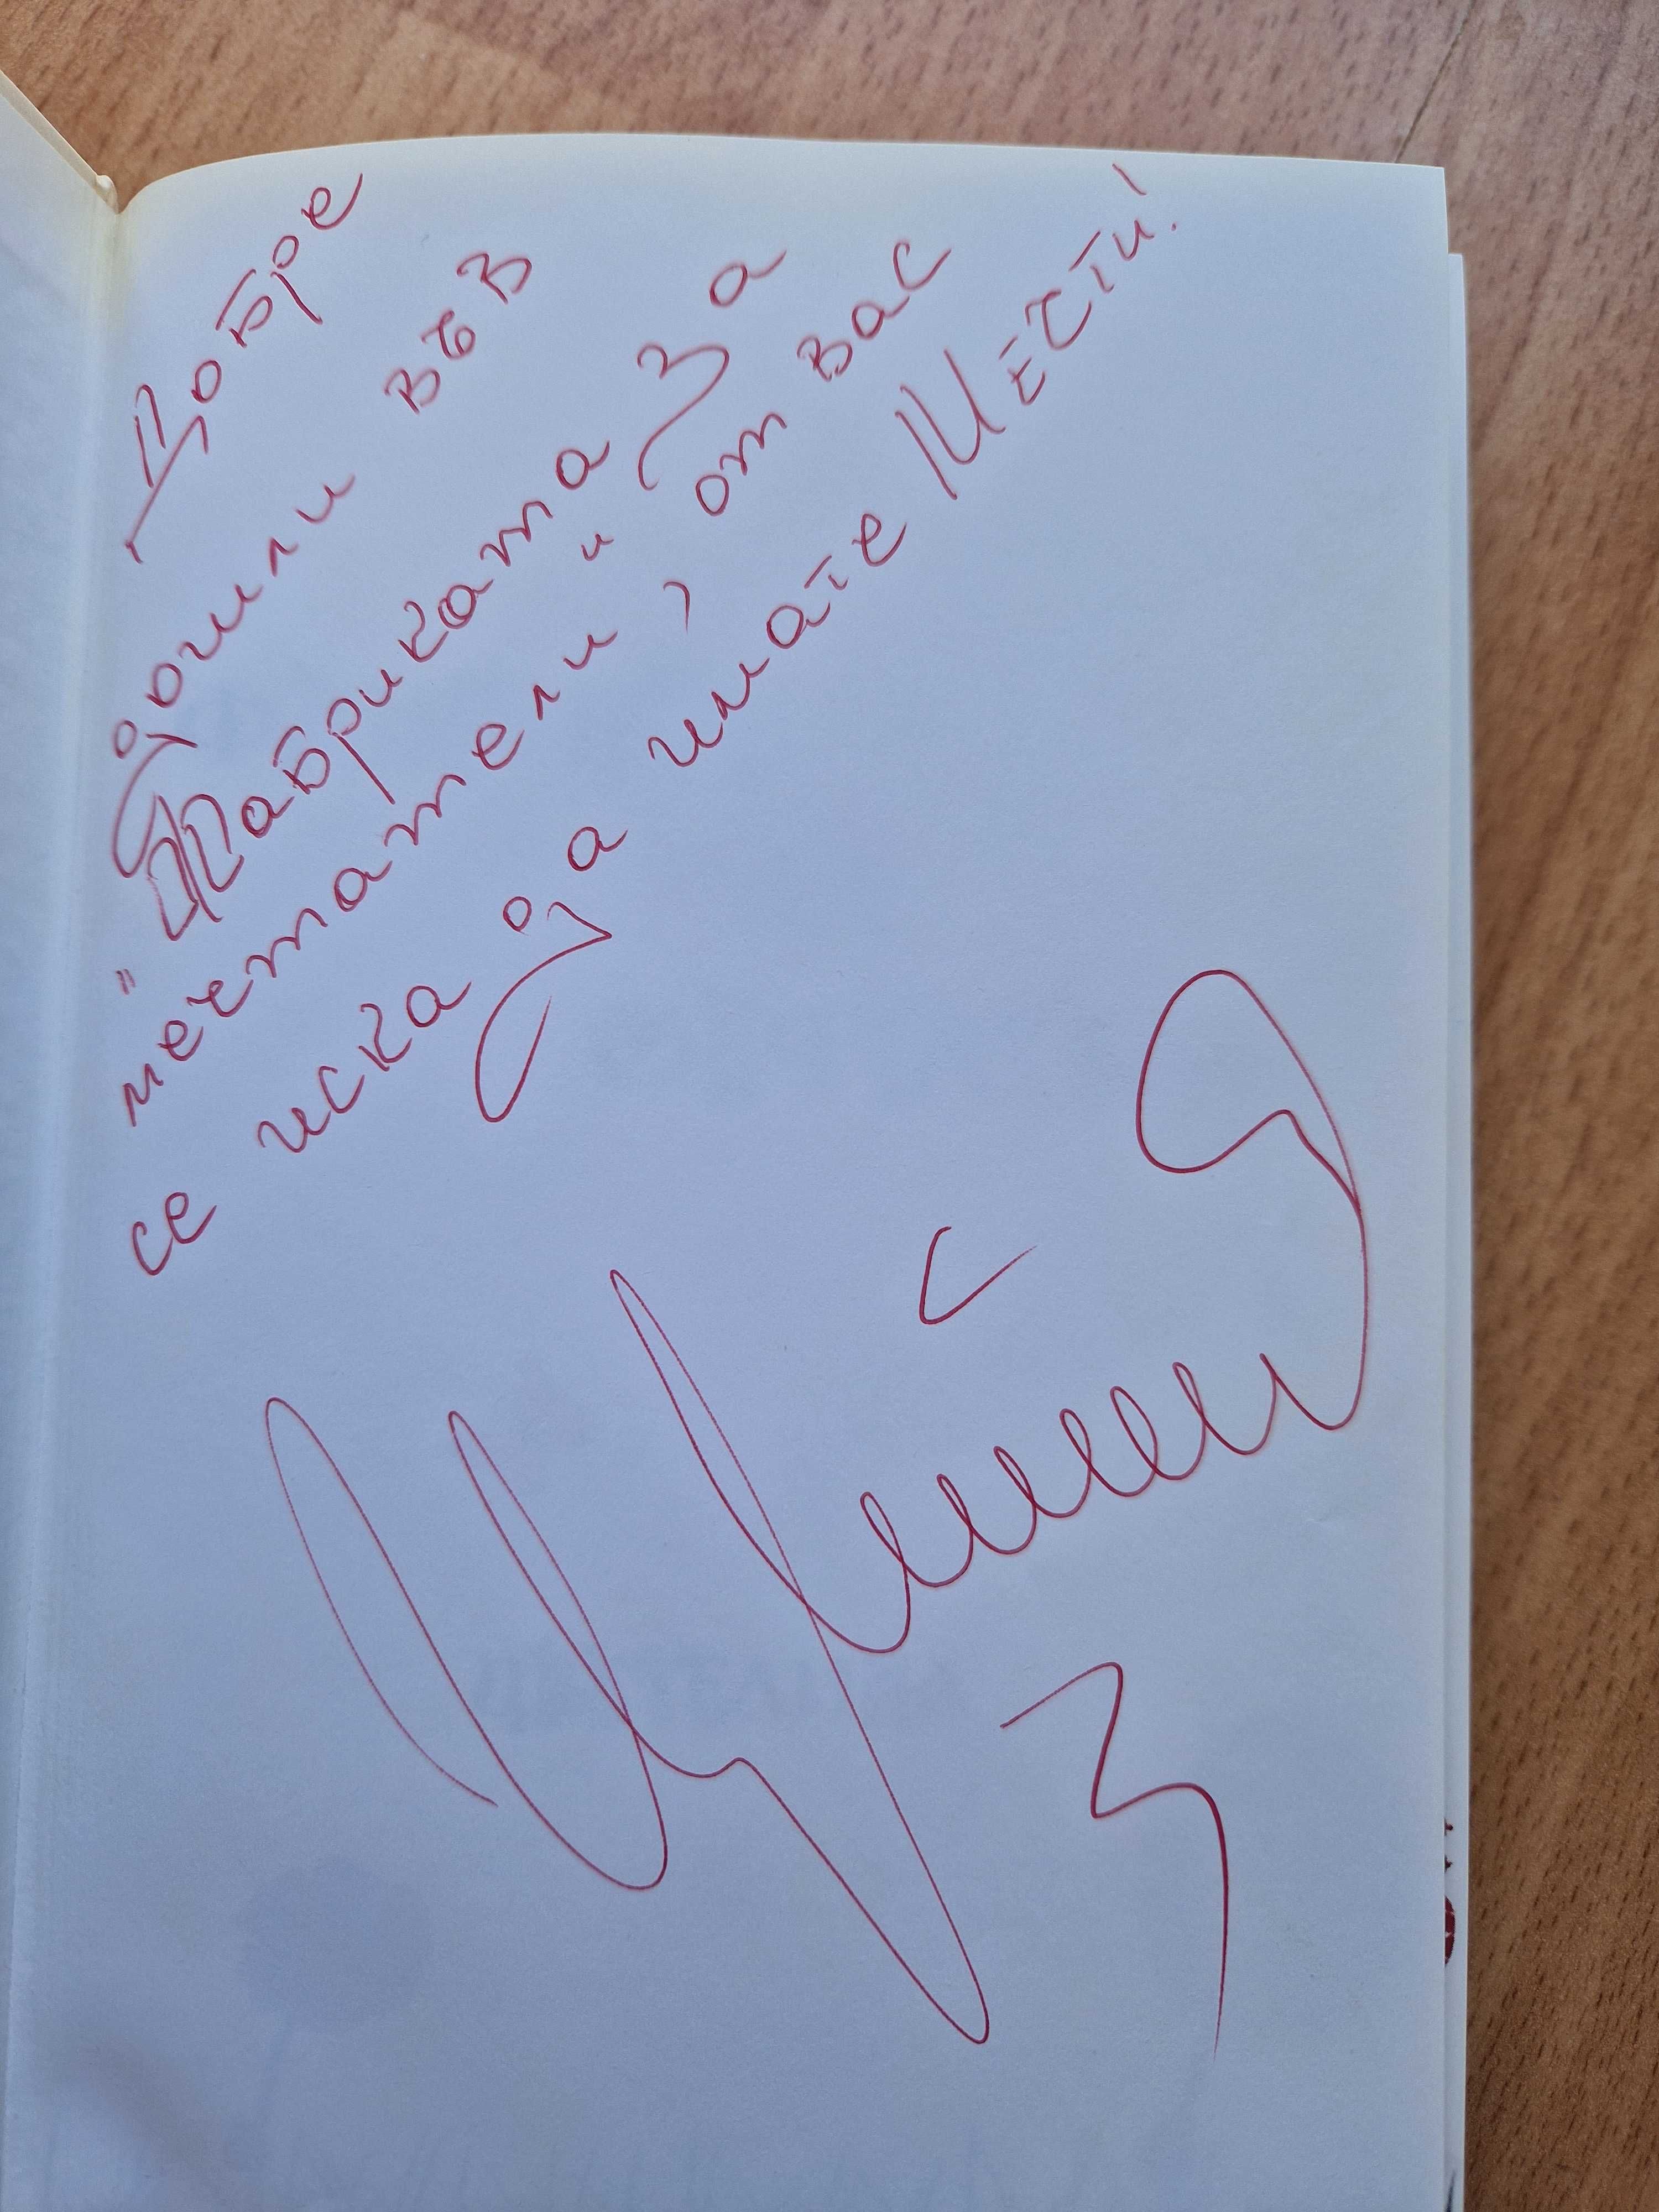 Добре
дошли във
"Фабриката за
мечтатели", от вас
се иска да имате Мечти!